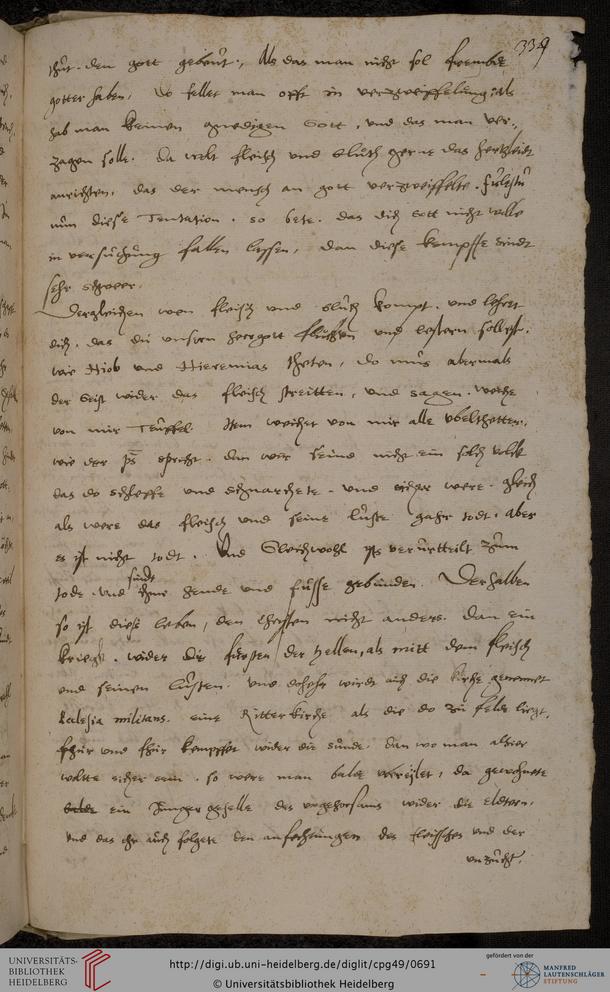 339
thut. den gott gebeut, Als das man nicht sol frembde
gotter haben, Do fellet man offt in verzweiffelung, als
hab man keinen gnedigen Gott, und das man ver-
zagen solle. Da wolt fleisch und bluth gerne das hertzleidt
anrichten, das der mensch an gott verzweiffelte. fulestu
nun diese Tentation. so bete. das dich Gott nicht wolle
in versuchung fallen lassen, dan diese kempffe sindt
sehr schwer.
Dergleichen wen fleisch und bluth kompt. und lehret
dich. das du unsern herrgott fluchen und lestern sollest.
wie Hiob und Hieremias theten, do mus abermals
der Geist wider das fleisch streitten, und sagen. weiche
von mir Teuffel. Item weichet von mir alle ubelthetter.
wie der ps spricht. dan wir seind nicht ein solch volck
das do schlaffe und schnarchete. und sicher were. gleich
als were das fleisch und seine luste gahr todt. aber
es ist nicht todt. Und Gleichwohl ists verurtteilt zum
tode. und sindt ihme hende und fusse gebunden. Derhalben
so ist diese leben, den Christen nicht anders. dan ein
krieg. wider die fursten der hellen, als mitt dem fleisch
und seinen lusten. und daher wirdt auch die kirche genennet
Ecclesia militans. eine Ritterkirche als die do zu felde liegt.
fhur und fhur kempffet wider die sunde. dan wo man alhier
woltte sicher sein. so were man balde ubereilet, da gewohnete
balde ein Junger geselle des ungehorsams wider die eldtern.
Und das ehr auch folgete den anfechtungen des fleisches und der
unzucht.
UNIVERSITÄTS-
BIBLIOTHEK
HEIDELBERG
http://digi.ub.uni-heidelberg.de/diglit/cpg49/0691
© Universitätsbibliothek Heidelberg
gefördert von der
MANFRED
LAUTENSCHLÄGER
STIFTUNG